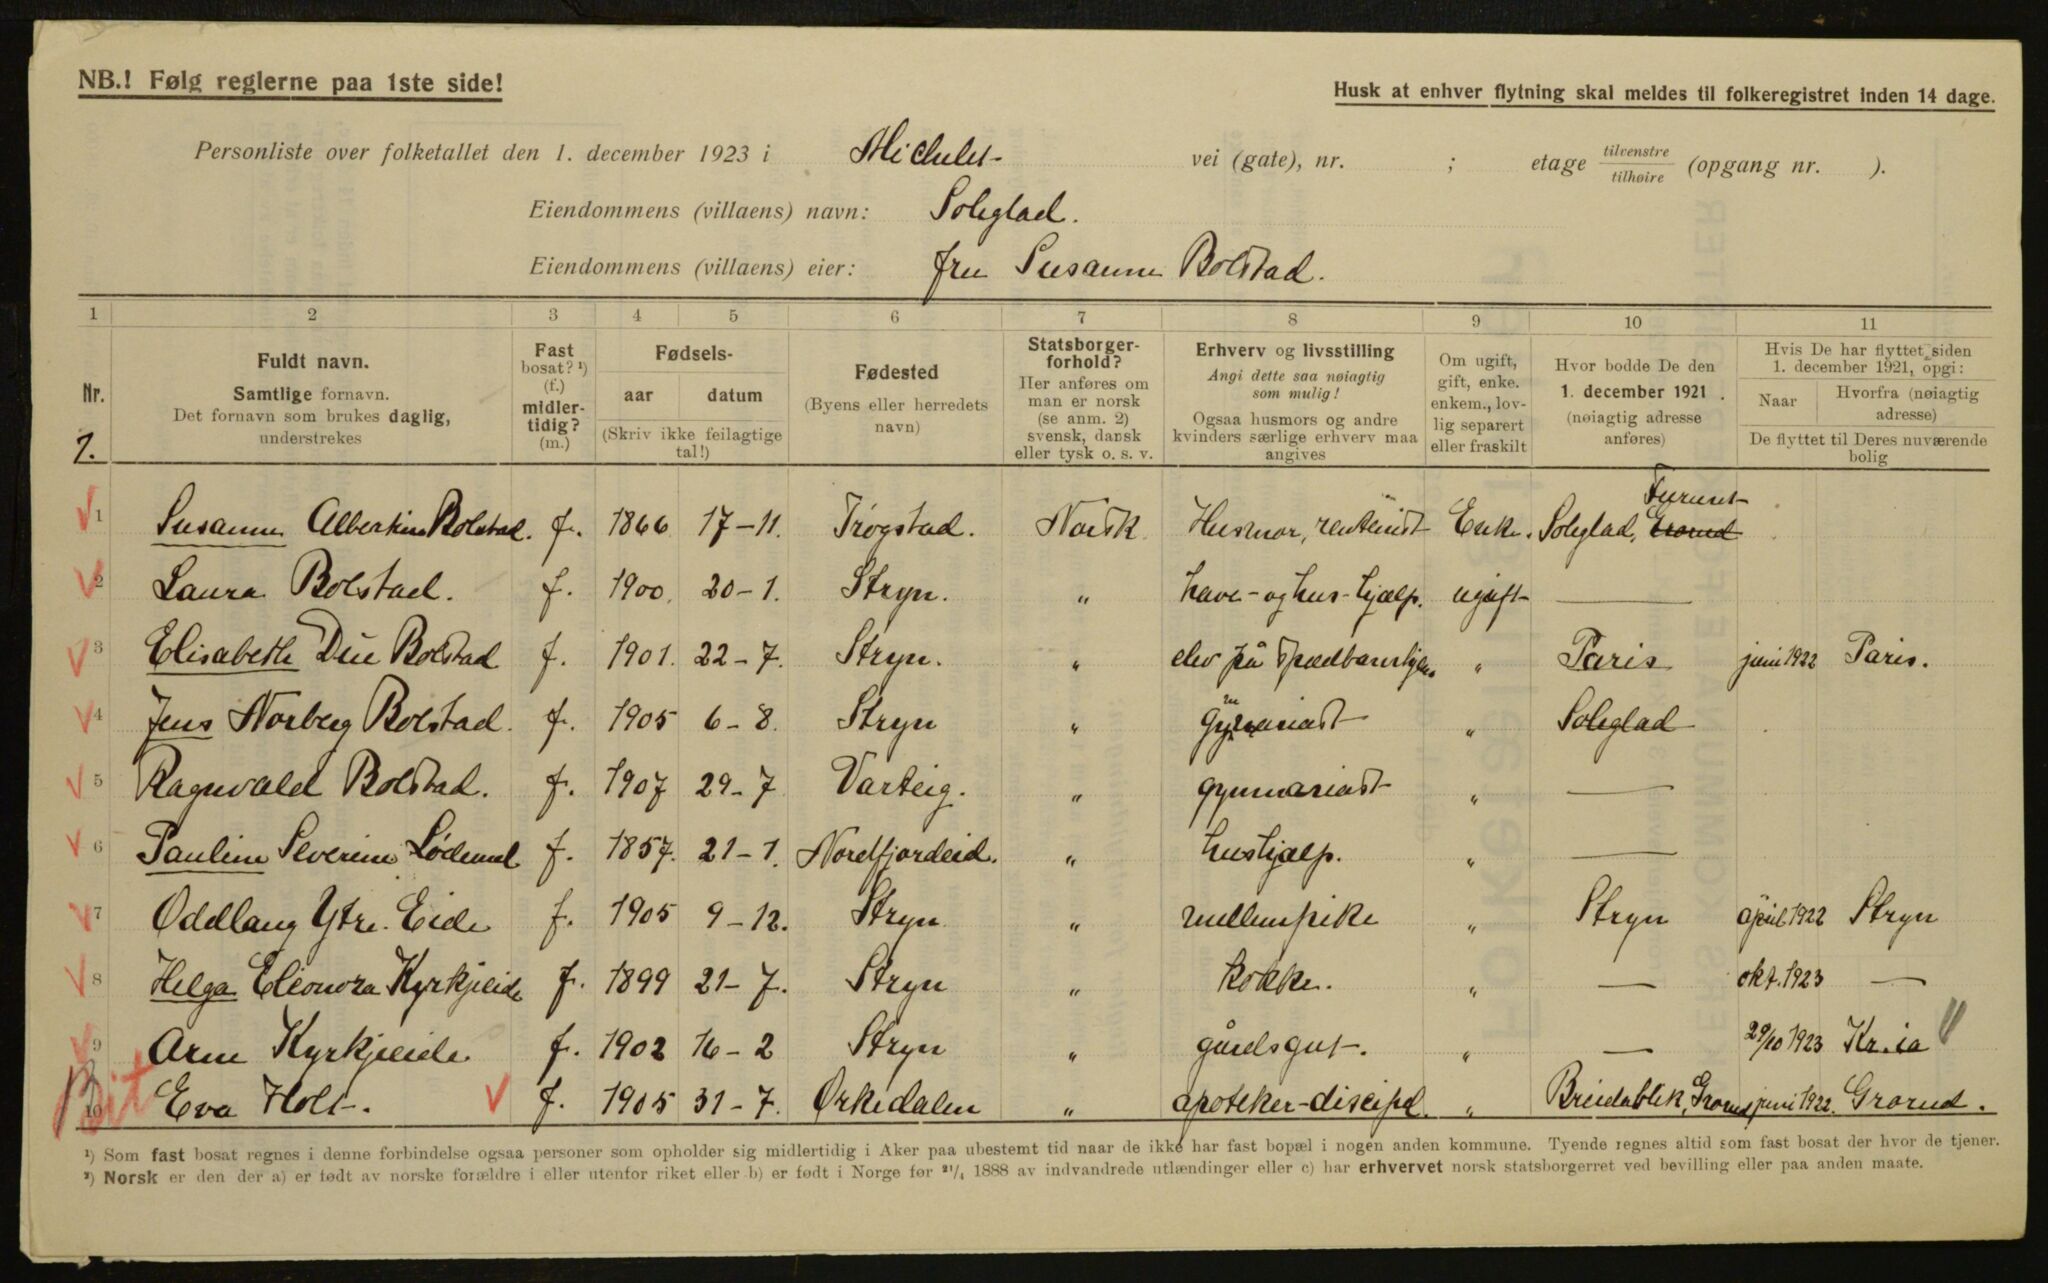 NB.! Følg reglerne paa 1ste side!
Husk at enhver flytning skal meldes til folkeregistret inden 14 dage.
Personliste over folketallet den 1. december 1923 i Michelet- vei (gate), nr. ; etage tilvenstre/tilhøire (opgang nr. ).
Eiendommens (villaens) navn: Soleglad.
Eiendommens (villaens) eier: fru Susanne Bolstad.
1 2 3 4 5 6 7 8 9 10 11
Nr.
7.
Fuldt navn.
Samtlige fornavn.
Det fornavn som brukes daglig,
understrekes
Fast
bosat? ¹)
(f.)
midler-
tidig?
(m.)
Fødsels-
aar datum
(Skriv ikke feilagtige
tal!)
Fødested
(Byens eller herredets
navn)
Statsborger-
forhold?
Her anføres om
man er norsk
(se anm. 2)
svensk, dansk
eller tysk o. s. v.
Erhverv og livsstilling
Angi dette saa nøiagtig
som mulig!
Ogsaa husmors og andre
kvinders særlige erhverv maa
angives
Om ugift,
gift, enke.
enkem., lov-
lig separert
eller fraskilt
Hvor bodde De den
1. december 1921
(nøiagtig adresse
anføres)
Hvis De har flyttet siden
1. december 1921, opgi:
Naar Hvorfra (nøiagtig
adresse)
De flyttet til Deres nuværende
bolig
Furuset
1 Susanne Albertine Bolstad. f. 1866 17-11. Trøgstad. Norsk Husmor, rentenist Enke. Soleglad, Grorud
2 Laura Bolstad. f. 1900. 20-1. Stryn. „ have- og hus-hjælp. ugift —
3 Elisabeth Due Bolstad f. 1901. 22-7. Stryn. „ elev på spædbarnshjem „ Paris juni 1922 Paris.
4 Jens Norberg Bolstad. f. 1905 6-8. Stryn „ gymnasiast „ Soleglad
5 Ragnvald Bolstad. f. 1907 29-7 Varteig. „ gymnasiast „ —
6 Pauline Severine Lødemel f. 1857. 21-1. Nordfjordeid. „ hushjælp. „ —
7 Oddlaug Ytre-Eide f. 1905 9-12. Stryn „ mellempike „ Stryn april 1922 Stryn
8 Helga Elionora Kyrkjeide f. 1899 21-7. Stryn „ kokke. „ — okt. 1923 —
9 Arne Kyrkjeeide f. 1902 16-2 Stryn „ gårdsgut. „ — 29/10 1923 Kr.ia
Bit
10 Eva Holt. f. 1905 31-7. Ørkedalen „ apoteker-discipel. „ Breidablik, Grorud juni 1922. Grorud.
¹) Som fast bosat regnes i denne forbindelse ogsaa personer som opholder sig midlertidig i Aker paa ubestemt tid naar de ikke har fast bopæl i nogen anden kommune. Tyende regnes altid som fast bosat der hvor de tjener.
²) Norsk er den der a) er født av norske forældre i eller utenfor riket eller b) er født i Norge før ²¹/₄ 1888 av indvandrede utlændinger eller c) har erhvervet norsk statsborgerret ved bevilling eller paa anden maate.